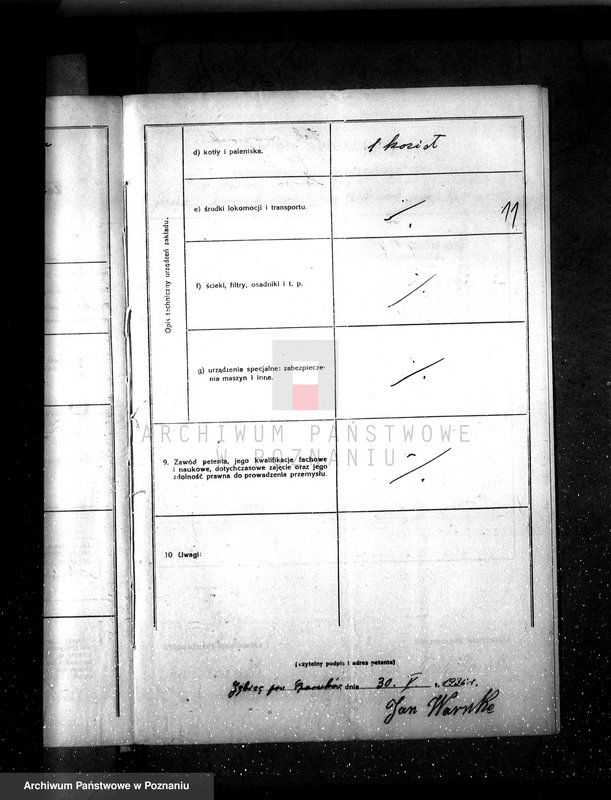 d) kotły i paleniska.
1 kocioł
e) środki lokomocji i transportu.
./.
11
Opis techniczny urządzeń zakładu.
f) ścieki, filtry, osadniki i t. p.
./.
g) urządzenia specjalne: zabezpiecze-
nia maszyn i inne.
./.
ARCHIWUM PAŃSTWOWE
W POZNANIU
9. Zawód petenta, jego kwalifikacje fachowe
i naukowe, dotychczasowe zajęcie oraz jego
zdolność prawna do prowadzenia przemysłu.
./.
10 Uwagi:
(czytelny podpis i adres petenta)
pow dnia 30. V. 1936 r.
Jan Warnke
Archiwum Państwowe w Poznaniu